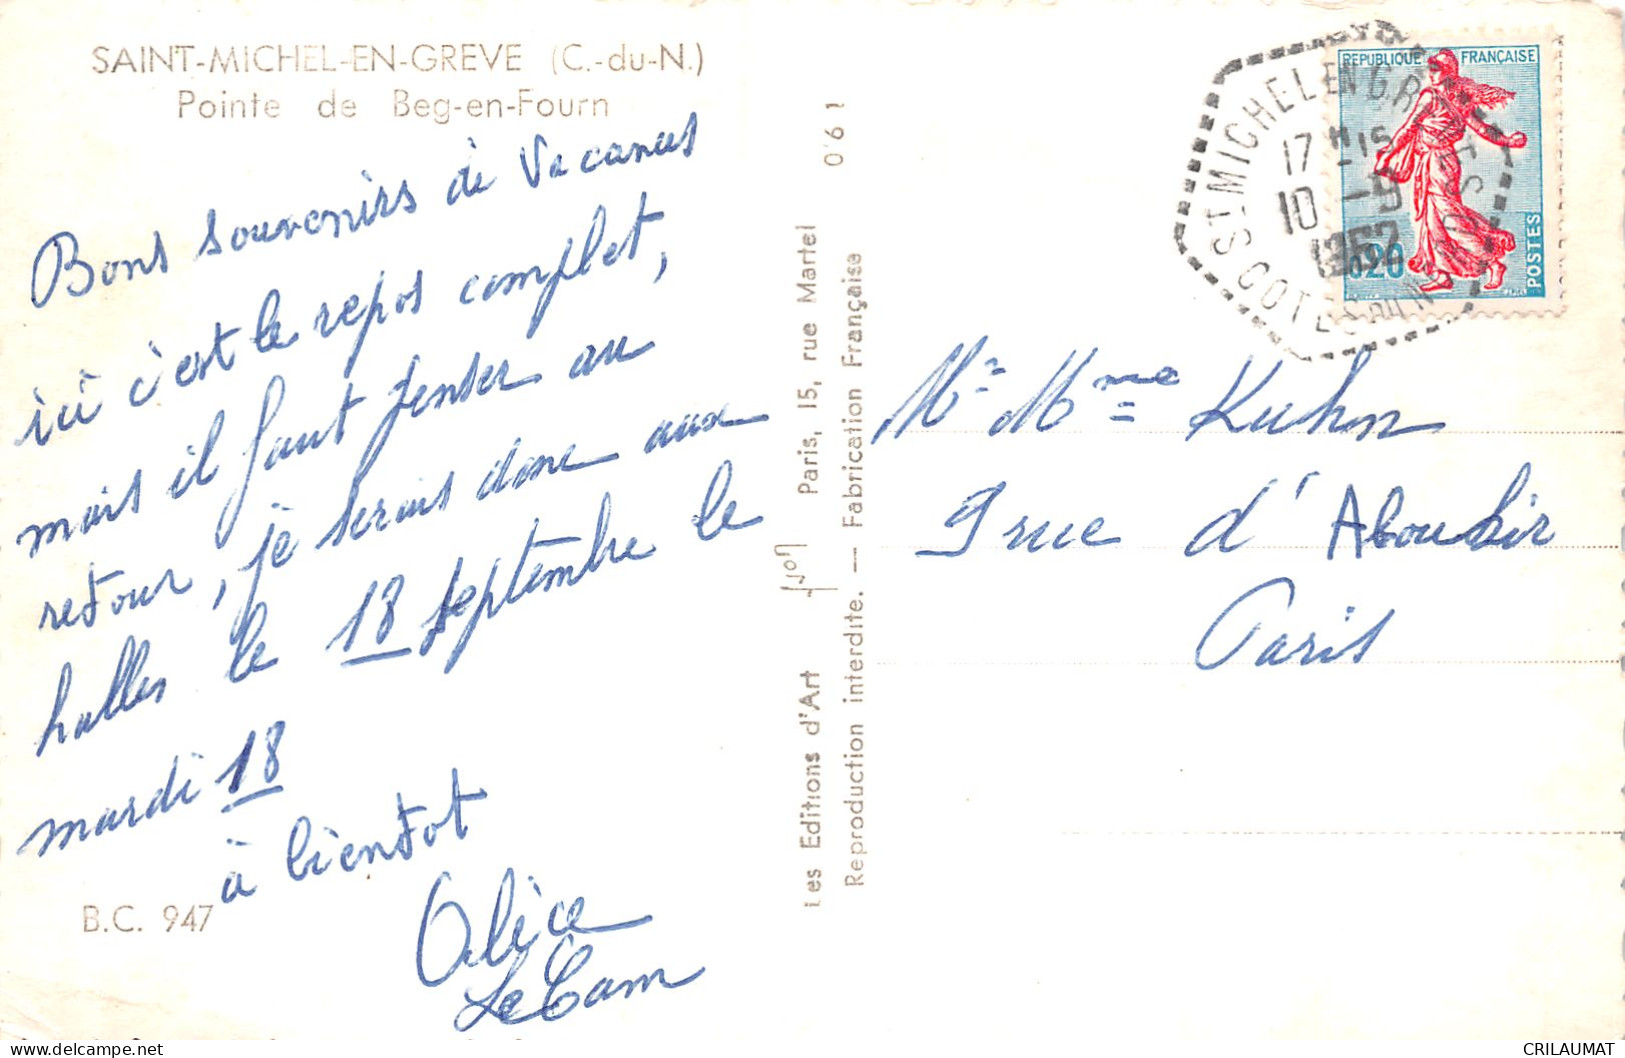 SAINT-MICHEL-EN-GREVE (C.-du-N.)
Pointe de Beg-en-Fourn
Bons souvenirs de Vacances
ici c'est le repos complet,
mais il faut penser au
retour, je serais donc aux
halles le 18 septembre le
mardi 18
à bientot
Alice
Le Cam
B.C. 947
Les Editions d'Art Paris, 15, rue Martel 1 9.0
Reproduction interdite. — Fabrication Française
ST MICHEL EN GREVE
COTES DU NORD
17 H 15
10 -9
1962
REPUBLIQUE FRANÇAISE
0,20
POSTES
Mr Mme Kuhn
9 rue d'Aboukir
Paris
CRILAUMAT